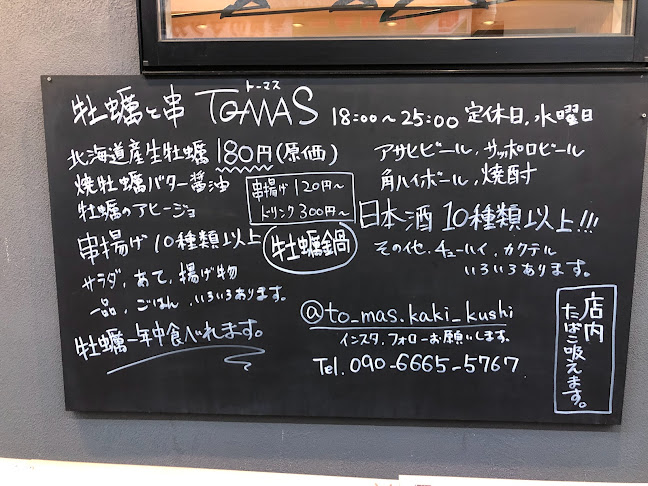 トーマス
牡蠣と串 TOMAS 18:00〜25:00 定休日,水曜日
北海道産生牡蠣 180円(原価)
焼牡蠣バター醤油
牡蠣のアヒージョ
串揚げ 120円〜
ドリンク 300円〜
串揚げ 10種類以上
牡蠣鍋
サラダ,あて,揚げ物
一品,ごはん,いろいろあります。
牡蠣一年中食べれます。
アサヒビール,サッポロビール
角ハイボール,焼酎
日本酒 10種類以上!!!
その他,チューハイ,カクテル
いろいろあります。
@to_mas.kaki_kushi
インスタ,フォローお願いします。
Tel.090-6665-5767
店内
たばこ吸えます。